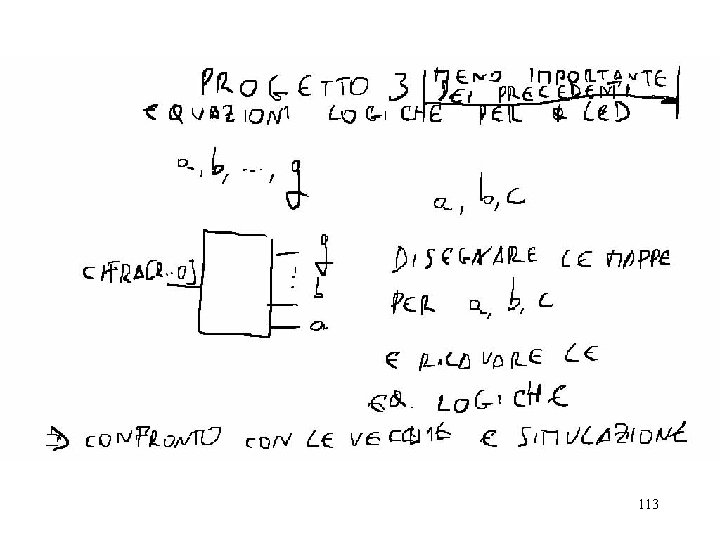 PROGETTO 3 MENO IMPORTANTE
DEI PRECEDENTI
EQUAZIONI LOGICHE PER I LED
a, b, ..., g
a, b, c
CIFRA[3..0]
g
b
a
DISEGNARE LE MAPPE
PER a, b, c
E RICAVARE LE
EQ. LOGICHE
⇒ CONFRONTO CON LE VECCHIE E SIMULAZIONE
113